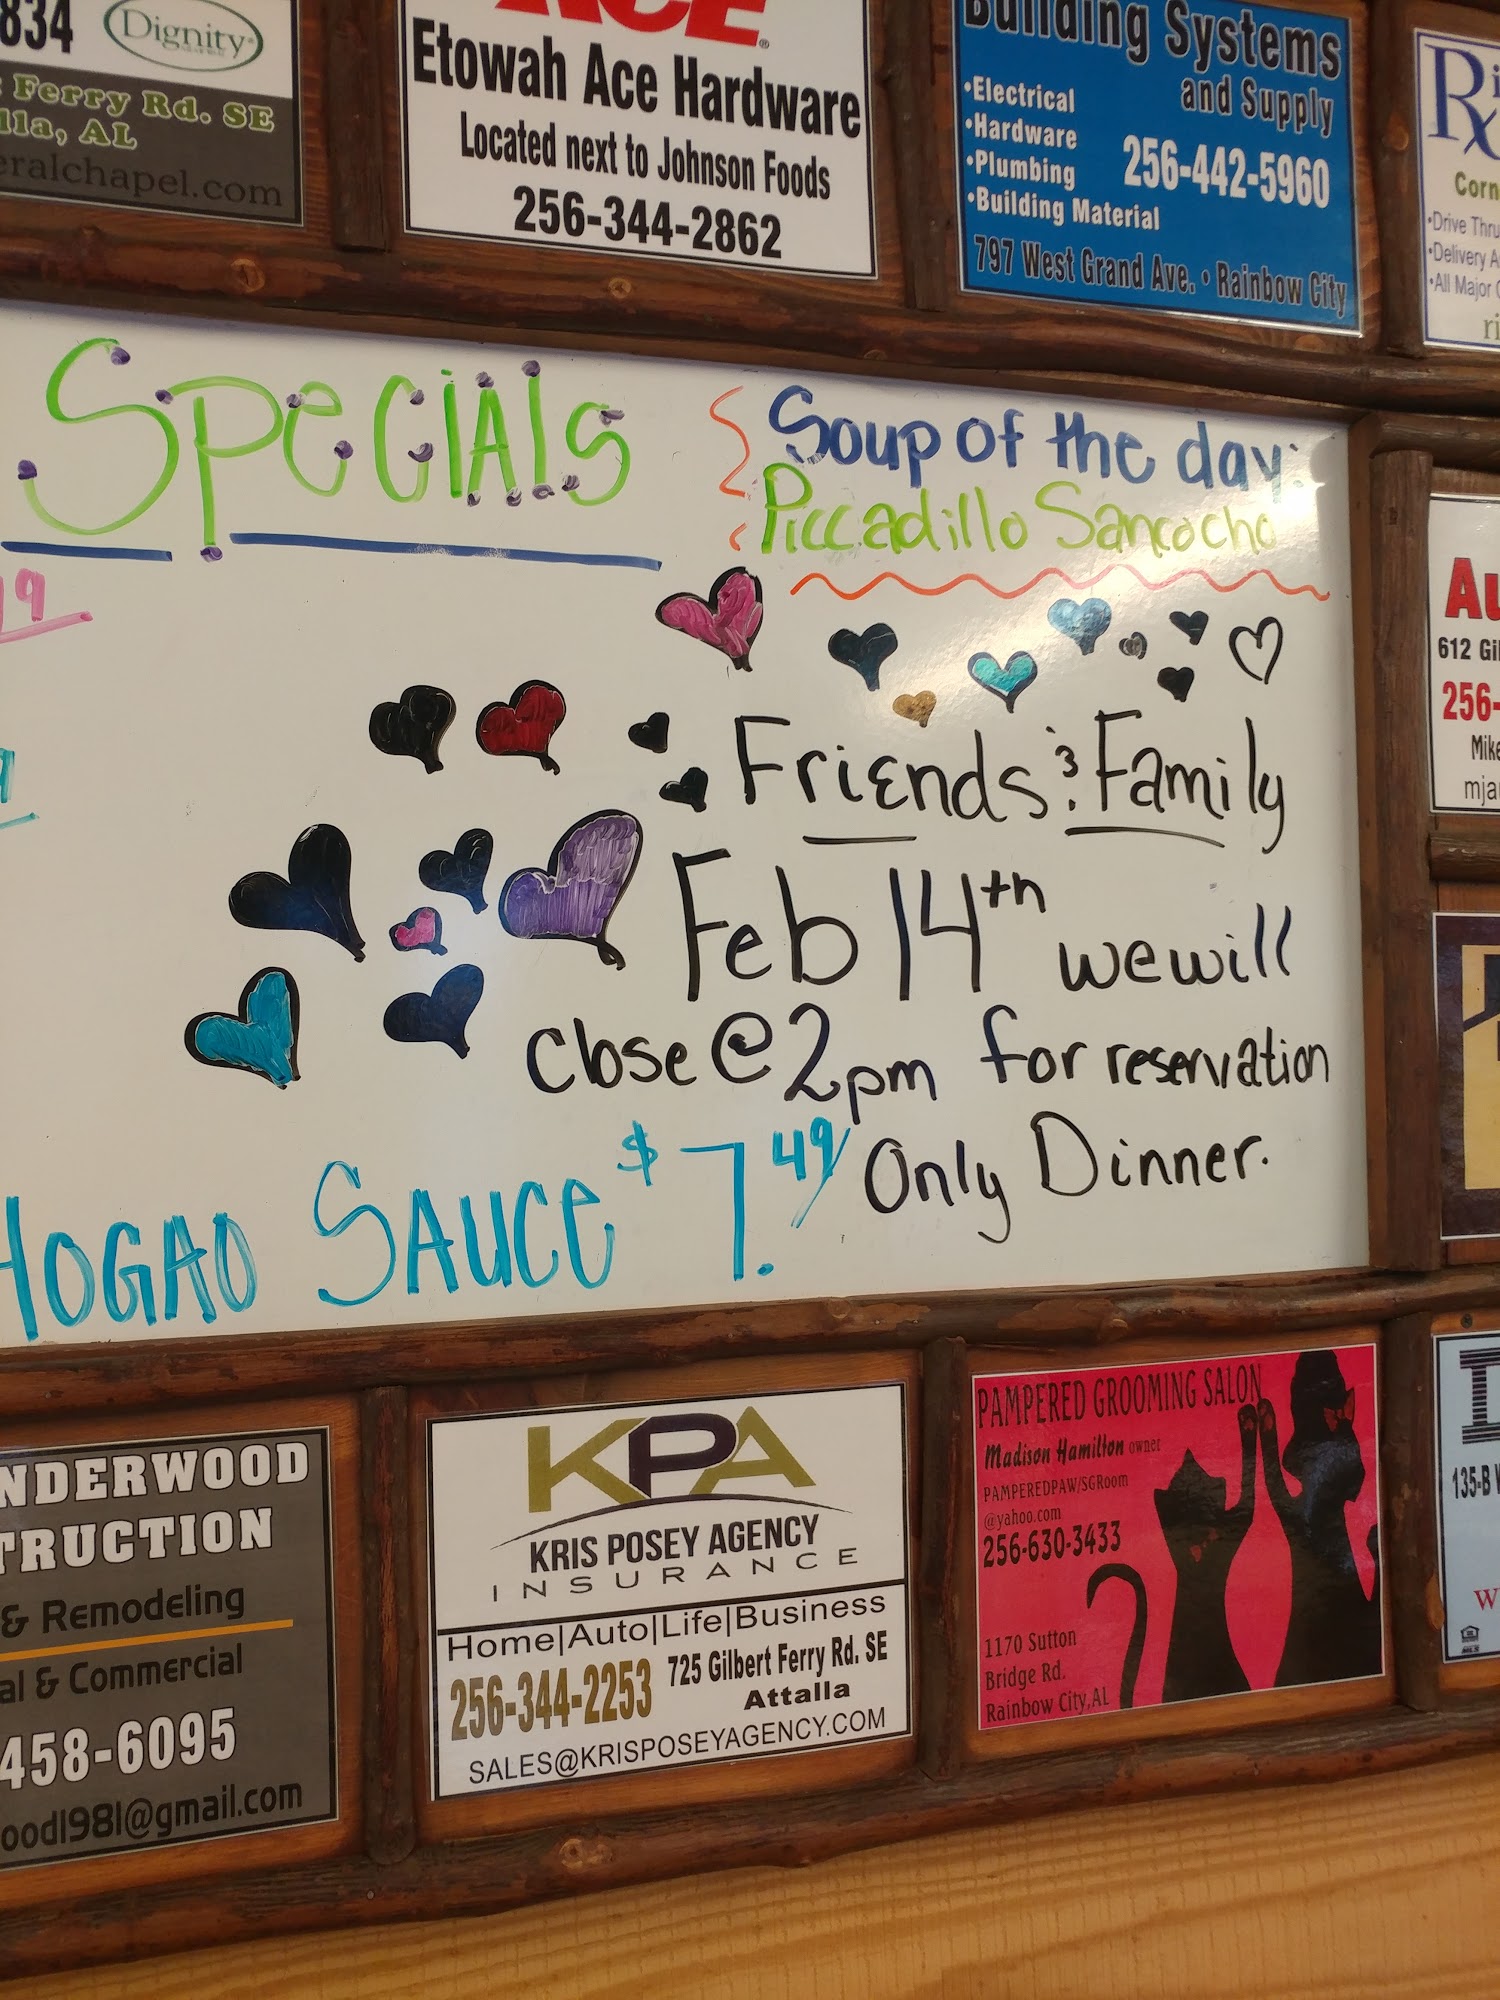 834
Dignity
Ferry Rd. SE
lla, AL
eralchapel.com
ACE
Etowah Ace Hardware
Located next to Johnson Foods
256-344-2862
Building Systems
and Supply
•Electrical
•Hardware
•Plumbing
•Building Material
256-442-5960
797 West Grand Ave. • Rainbow City
Ri
Rx
Corn
•Drive Thru
•Delivery A
•All Major C
ri
Specials
Soup of the day:
Piccadillo Sancocho
19
Friends & Family
Feb 14th we will
Close @ 2pm for reservation
Only Dinner.
HOGAO SAUCE $7.49
Au
612 Gil
256-
Mike
mja
NDERWOOD
TRUCTION
& Remodeling
al & Commercial
458-6095
ood1981@gmail.com
KPA
KRIS POSEY AGENCY
INSURANCE
Home|Auto|Life|Business
256-344-2253
725 Gilbert Ferry Rd. SE
Attalla
SALES@KRISPOSEYAGENCY.COM
PAMPERED GROOMING SALON
Madison Hamilton owner
PAMPEREDPAW/SGRoom
@yahoo.com
256-630-3433
1170 Sutton
Bridge Rd.
Rainbow City, AL
135-B
W